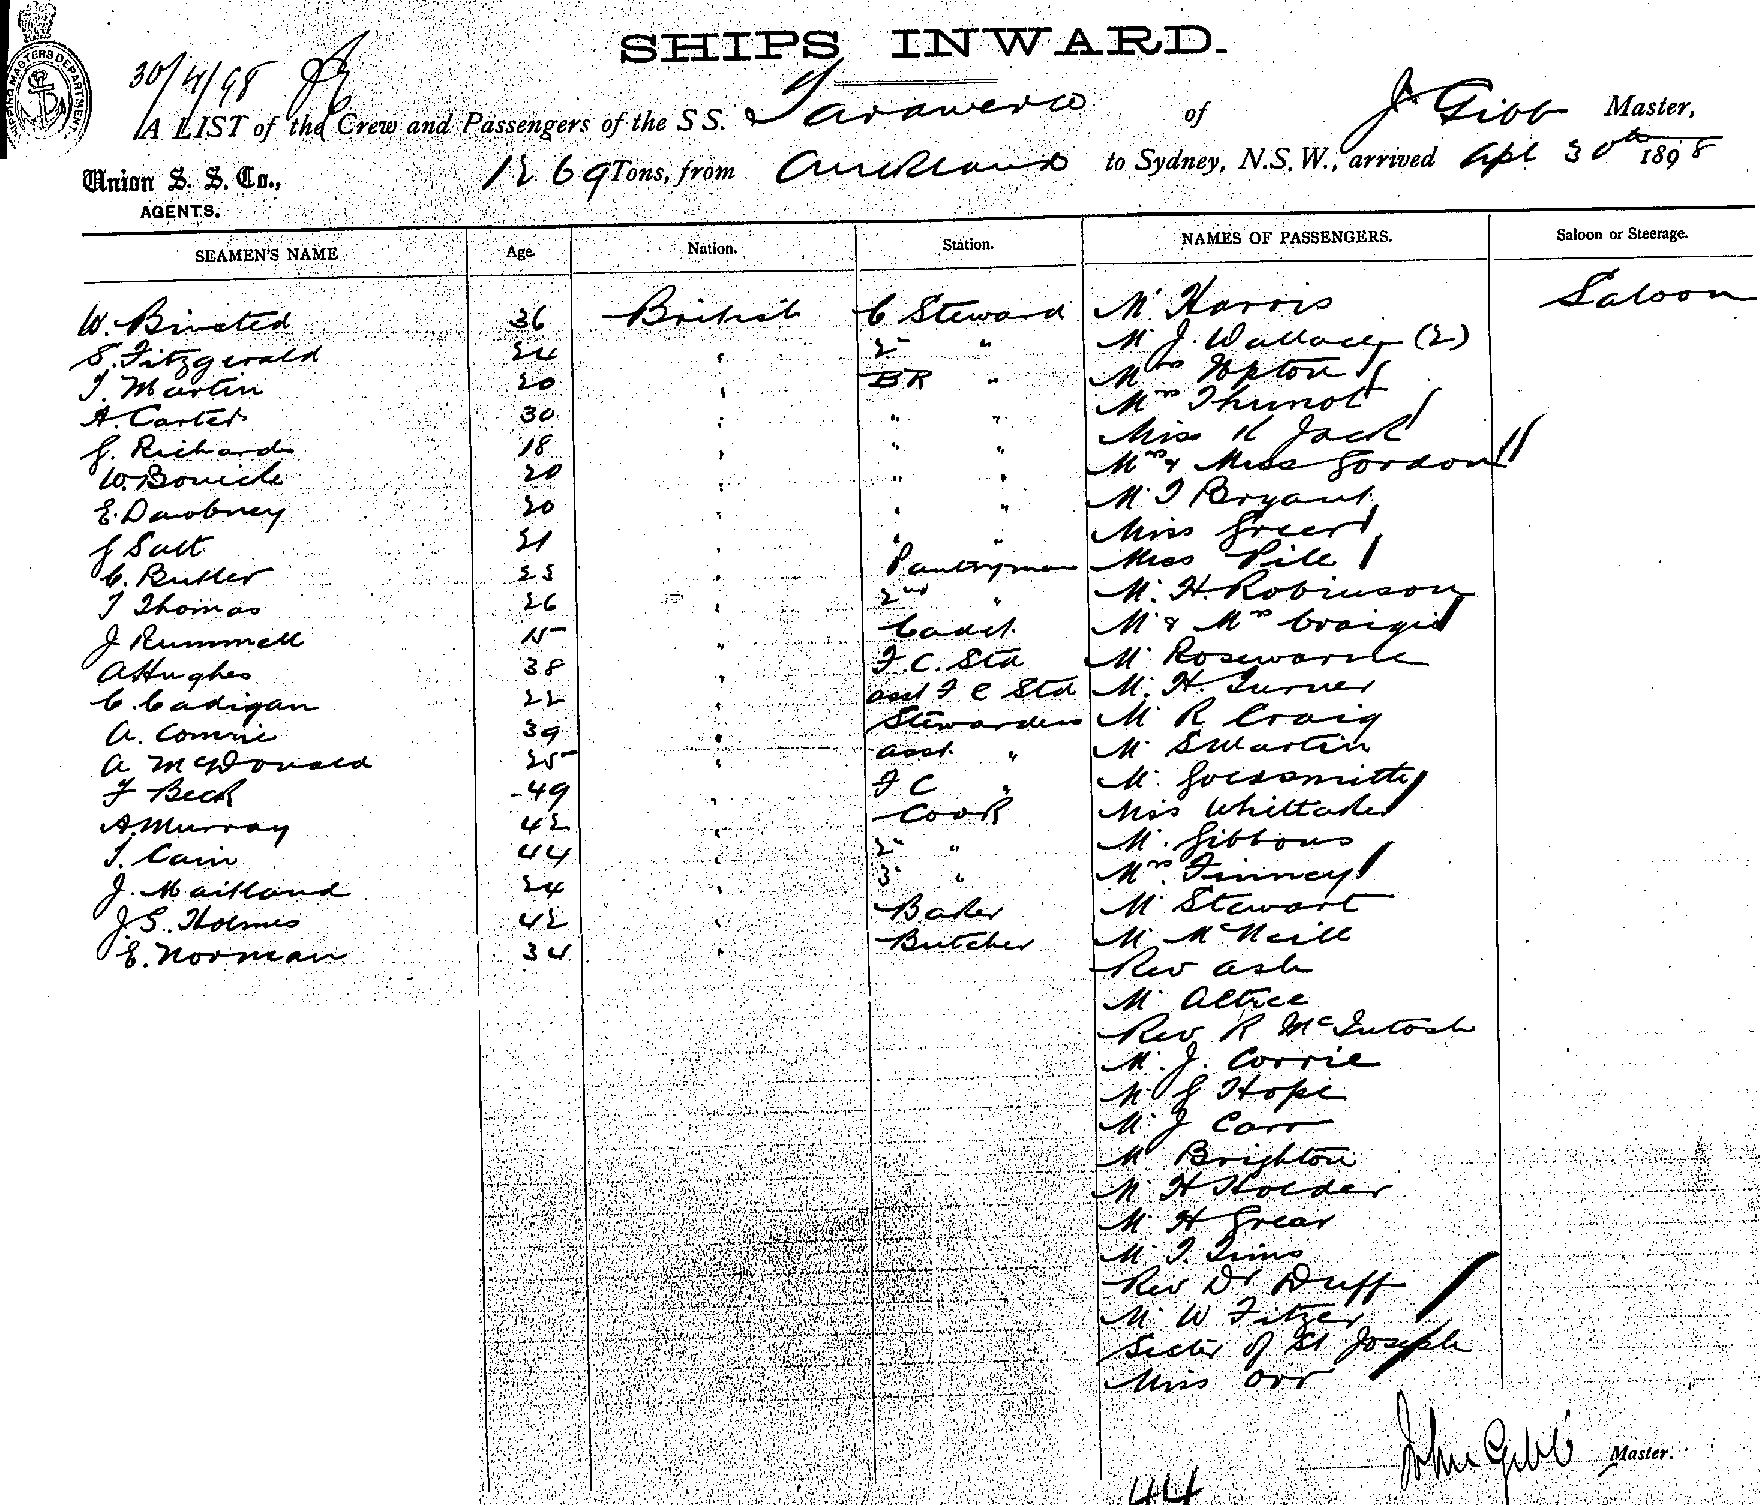 SHIPS INWARD.
30/4/98
A LIST of the Crew and Passengers of the SS. Tarawera of J. Gibb Master,
Union S. S. Co., 1269 Tons, from Auckland to Sydney, N.S.W., arrived Apl 30th 1898
AGENTS.
SEAMEN'S NAME Age. Nation. Station. NAMES OF PASSENGERS. Saloon or Steerage.
W. Binsted 36 British C Steward Mr Harris Saloon
S. Fitzgerald 24 " 2 " Mr J. Wallace (2)
T. Martin 20 " BR " Mrs Upton
A. Carter 30 " " " Mrs Thunot
G. Richards 18 " " " Miss K Jack
W. 20 " " " Mrs & Miss Gordon
E. Dawbney 20 " " " Mr T Bryant
G Salt 21 " " " Miss Greer
C. Butler 23 " Pantryman Miss Pill
T Thomas 26 " 2nd " Mr. H. Robinson
J Rummell 15 " Cadet Mr & Mrs Craigie
A Hughes 38 " F.C. Std Mr Rosewarne
C. Cadigan 22 " asst F C Std Mr. H. Turner
A. Comrie 39 " Stewardess Mr R Craig
A McDonald 25 " asst " Mr S Martin
F Beck 49 " F C " Mr. Goldsmith
A Murray 42 " Cook Miss Whittaker
T. Cain 44 " 2 " Mr. Gibbons
J. Maitland 24 " 3 " Mrs. Finney
J. S. Holmes 42 " Baker Mr Stewart
E. Norman 34 " Butcher Mr McNeill
Rev Ash
Mr
Rev R McIntosh
Mr. J. Corrie
Mr G Hope
Mr J Carr
Mr Brighton
Mr H Holder
Mr H Grear
Mr T. Tims
Rev Dr Duff
Mr W Fitzer
Sister of St Joseph
Miss Orr
John Gibb Master.
44